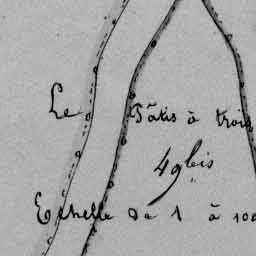 Le Pâtis à trois
49 bis
Echelle de 1 à 100